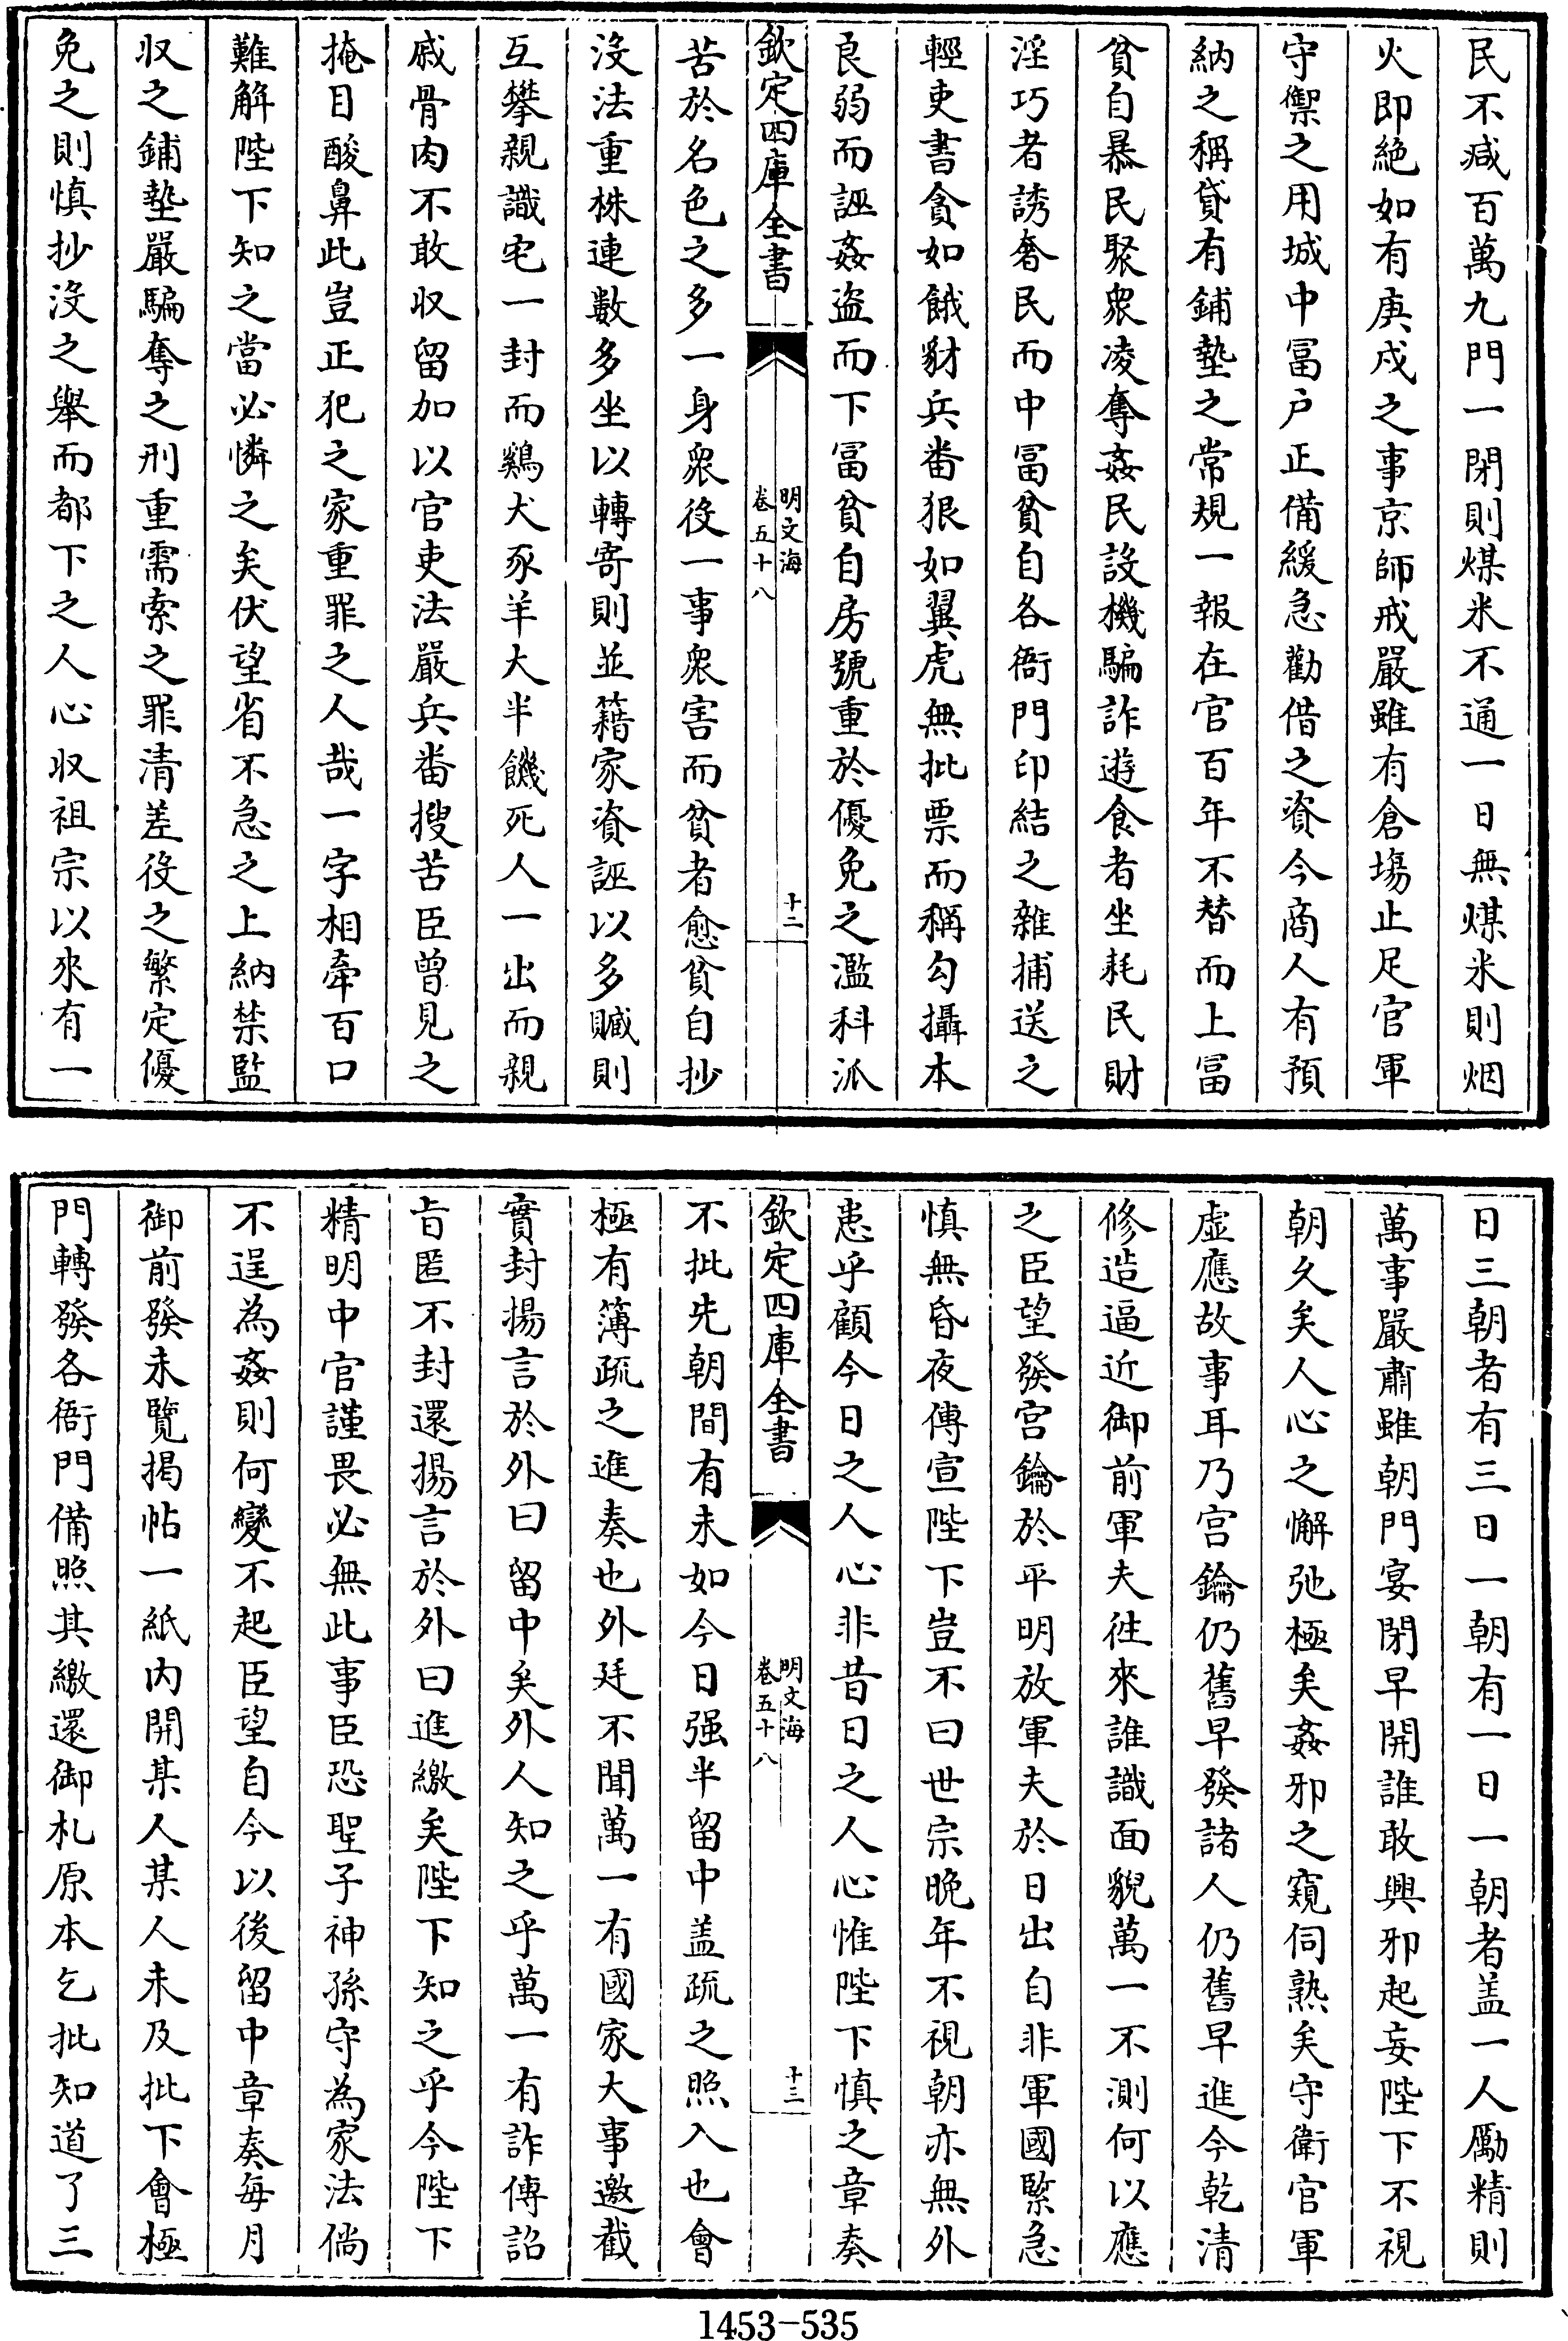 民不減百萬九門一閉則煤米不通一日無煤米則烟
火即絕如有庚戌之事京師戒嚴雖有倉場止足官軍
守禦之用城中冨户正備緩急勸借之資今商人有預
納之稱貸有鋪墊之常規一報在官百年不替而上冨
貧自暴民聚衆凌奪姦民設機騙詐遊食者坐耗民財
淫巧者誘奢民而中冨貧自各衙門印結之雜捕送之
輕吏書貪如餓豺兵番狠如翼虎無批票而稱勾攝本
良弱而誣姦盗而下冨貧自房號重於優免之濫科派
欽定四庫全書
明文海
卷五十八
十二
苦於名色之多一身衆役一事衆害而貧者愈貧自抄
沒法重株連數多坐以轉寄則並籍家資誣以多贓則
互攀親識宅一封而鷄犬豕羊大半饑死人一出而親
戚骨肉不敢収留加以官吏法嚴兵番搜苦臣曾見之
掩目酸鼻此豈正犯之家重罪之人哉一字相牽百口
難解陛下知之當必憐之矣伏望省不急之上納禁監
収之鋪墊嚴騙奪之刑重需索之罪清差役之繁定優
免之則慎抄沒之舉而都下之人心収祖宗以來有一
日三朝者有三日一朝有一日一朝者盖一人勵精則
萬事嚴肅雖朝門宴閉早開誰敢興邪起妄陛下不視
朝久矣人心之懈弛極矣姦邪之窺伺熟矣守衛官軍
虛應故事耳乃宫鑰仍舊早發諸人仍舊早進今乾清
修造逼近御前軍夫徃來誰識面貎萬一不測何以應
之臣望發宫鑰於平明放軍夫於日出自非軍國緊急
慎無昏夜傳宣陛下豈不曰世宗晚年不視朝亦無外
患乎顧今日之人心非昔日之人心惟陛下慎之章奏
欽定四庫全書
明文海
卷五十八
十三
不批先朝間有未如今日强半留中盖疏之照入也會
極有簿疏之進奏也外廷不聞萬一有國家大事邀截
實封揚言於外曰留中矣外人知之乎萬一有詐傳詔
旨匿不封還揚言於外曰進繳矣陛下知之乎今陛下
精明中官謹畏必無此事臣恐聖子神孫守為家法倘
不逞為姦則何變不起臣望自今以後留中章奏每月
御前發未覽揭帖一紙内開某人某人未及批下會極
門轉發各衙門備照其繳還御札原本乞批知道了三
1453-535